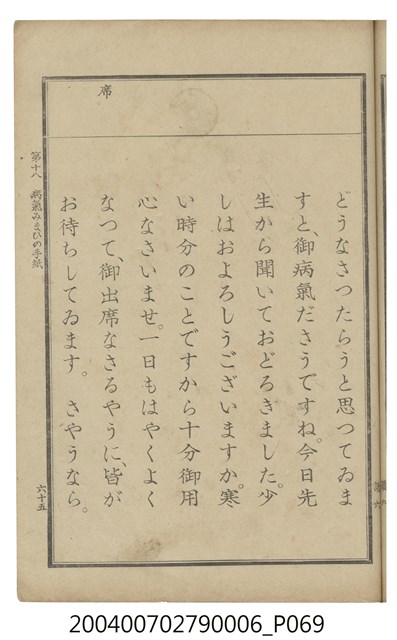 席
どうなさつたらうと思つてゐま
すと、御病氣ださうですね。今日先
生から聞いておどろきました。少
しはおよろしうございますか。寒
い時分のことですから十分御用
心なさいませ。一日もはやくよく
なつて、御出席なさるやうに、皆が
お待ちしてゐます。さやうなら。
第十八 病氣みまひの手紙
六十五
200400702790006_P069